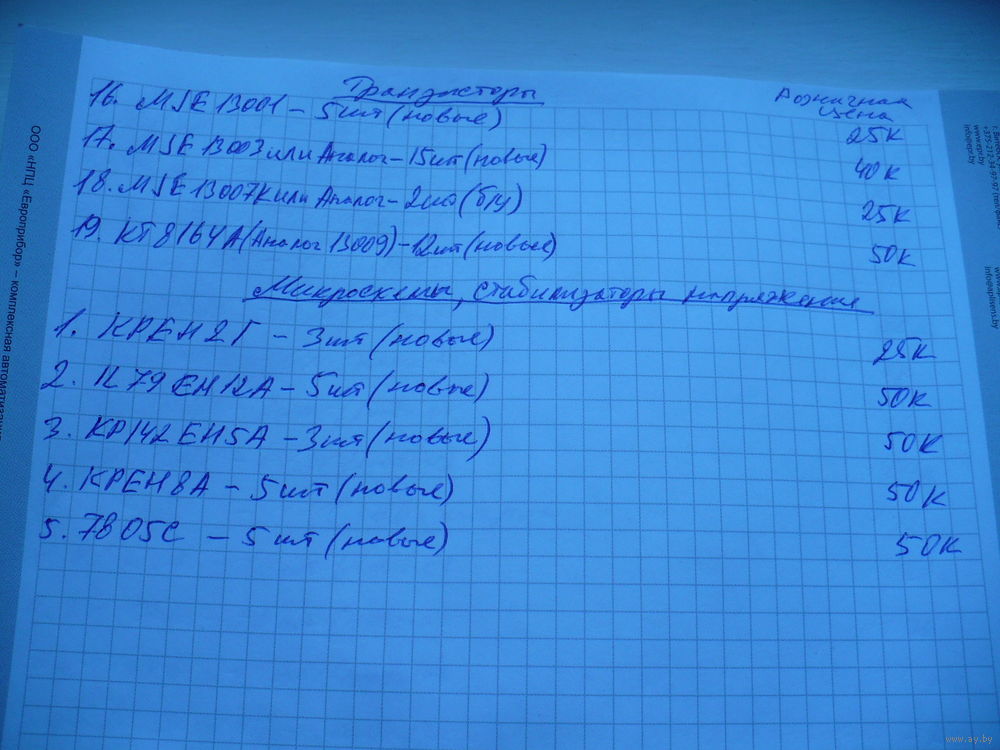 Транзисторы
Розничная
цена
16. MJE 13001 – 5шт (новые) 25к
17. MJE 13003 или Аналог – 15шт (новые) 40к
18. MJE 13007К или Аналог – 2шт (б/у) 25к
19. КТ8164А (Аналог 13009) – 12шт (новые) 50к
Микросхемы, стабилизаторы напряжения
1. КРЕН2Г – 3шт (новые) 25к
2. 1179ЕН12А – 5шт (новые) 50к
3. КР142ЕН5А – 3шт (новые) 50к
4. КРЕН8А – 5шт (новые) 50к
5. 7805С – 5шт (новые) 50к
ООО «НПЦ «Европрибор» – комплексная
www.ay.by